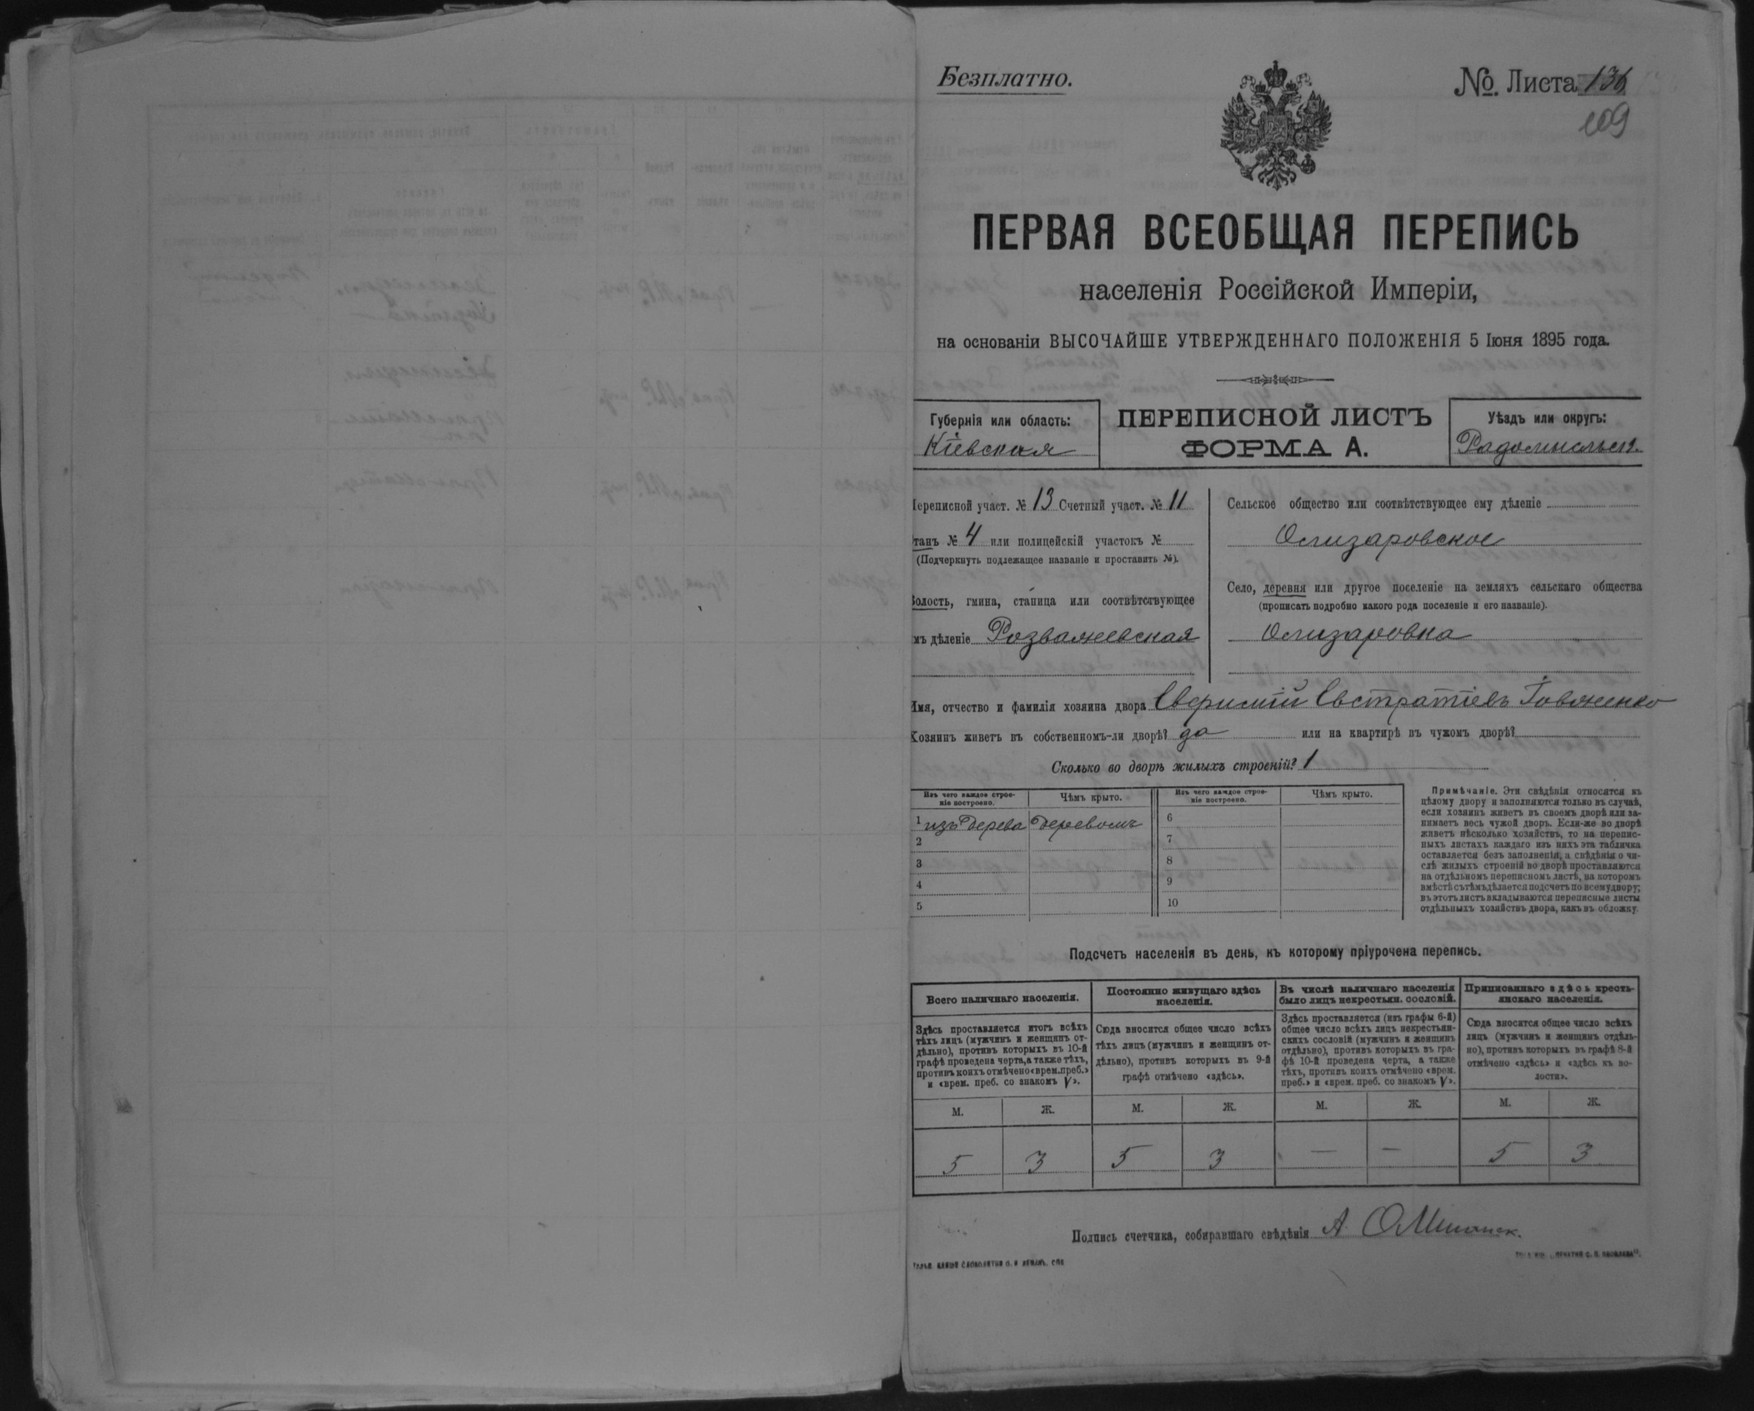 Безплатно.
№. Листа 136
109
ПЕРВАЯ ВСЕОБЩАЯ ПЕРЕПИСЬ
населенія Россійской Имперіи,
на основаніи ВЫСОЧАЙШЕ УТВЕРЖДЕННАГО ПОЛОЖЕНІЯ 5 Іюня 1895 года.
Губернія или область:
Кіевская
ПЕРЕПИСНОЙ ЛИСТЪ
ФОРМА А.
Уѣздъ или округъ:
Радомысльск.
Переписной участ. № 13 Счетный участ. № 11
Станъ № 4 или полицейскій участокъ №
(Подчеркнуть подлежащее названіе и проставить №).
Волость, гмина, станица или соотвѣтствующее
имъ дѣленіе Розважевская
Сельское общество или соотвѣтствующее ему дѣленіе
Олизаровское
Село, деревня или другое поселеніе на земляхъ сельскаго общества
(прописать подробно какого рода поселеніе и его названіе).
Олизаровка
Имя, отчество и фамилія хозяина двора Евстратіевъ
Хозяинъ живетъ въ собственномъ-ли дворѣ? да или на квартирѣ въ чужомъ дворѣ?
Сколько во дворѣ жилыхъ строеній? 1
Изъ чего каждое строеніе построено. Чѣмъ крыто. Изъ чего каждое строеніе построено. Чѣмъ крыто.
1 изъ дерева деревомъ 6
2 7
3 8
4 9
5 10
Примѣчаніе. Эти свѣдѣнія относятся къ
цѣлому двору и заполняются только въ случаѣ,
если хозяинъ живетъ въ своемъ дворѣ или за-
нимаетъ весь чужой дворъ. Если-же во дворѣ
живетъ нѣсколько хозяйствъ, то на перепис-
ныхъ листахъ каждаго изъ нихъ эта табличка
оставляется безъ заполненія, а свѣдѣнія о чи-
слѣ жилыхъ строеній во дворѣ проставляются
на отдѣльномъ переписномъ листѣ, на которомъ
вмѣстѣ съ тѣмъ дѣлается подсчетъ по всему двору;
въ этотъ листъ вкладываются переписные листы
отдѣльныхъ хозяйствъ двора, какъ въ обложку.
Подсчетъ населенія въ день, къ которому пріурочена перепись.
Всего наличнаго населенія.
Здѣсь проставляется итогъ всѣхъ
тѣхъ лицъ (мужчинъ и женщинъ от-
дѣльно), противъ которыхъ въ 10-й
графѣ проведена черта, а также тѣхъ,
противъ коихъ отмѣчено «врем. преб.»
и «врем. преб. со знакомъ V».
Постоянно живущаго здѣсь
населенія.
Сюда вносится общее число всѣхъ
тѣхъ лицъ (мужчинъ и женщинъ от-
дѣльно), противъ которыхъ въ 9-й
графѣ отмѣчено «здѣсь».
Въ числѣ наличнаго населенія
было лицъ некрестьян. сословій.
Здѣсь проставляется (изъ графы 6-й)
общее число всѣхъ лицъ некрестьян-
скихъ сословій (мужчинъ и женщинъ
отдѣльно), противъ которыхъ въ гра-
фѣ 10-й проведена черта, а также
тѣхъ, противъ коихъ отмѣчено «врем.
преб.» и «врем. преб. со знакомъ V».
Приписаннаго здѣсь кресть-
янскаго населенія.
Сюда вносится общее число всѣхъ
лицъ (мужчинъ и женщинъ отдѣль-
но), противъ которыхъ въ графѣ 8-й
отмѣчено «здѣсь» и «здѣсь къ во-
лости».
М. Ж. М. Ж. М. Ж. М. Ж.
5 3 5 3 — — 5 3
Подпись счетчика, собиравшаго свѣдѣнія А